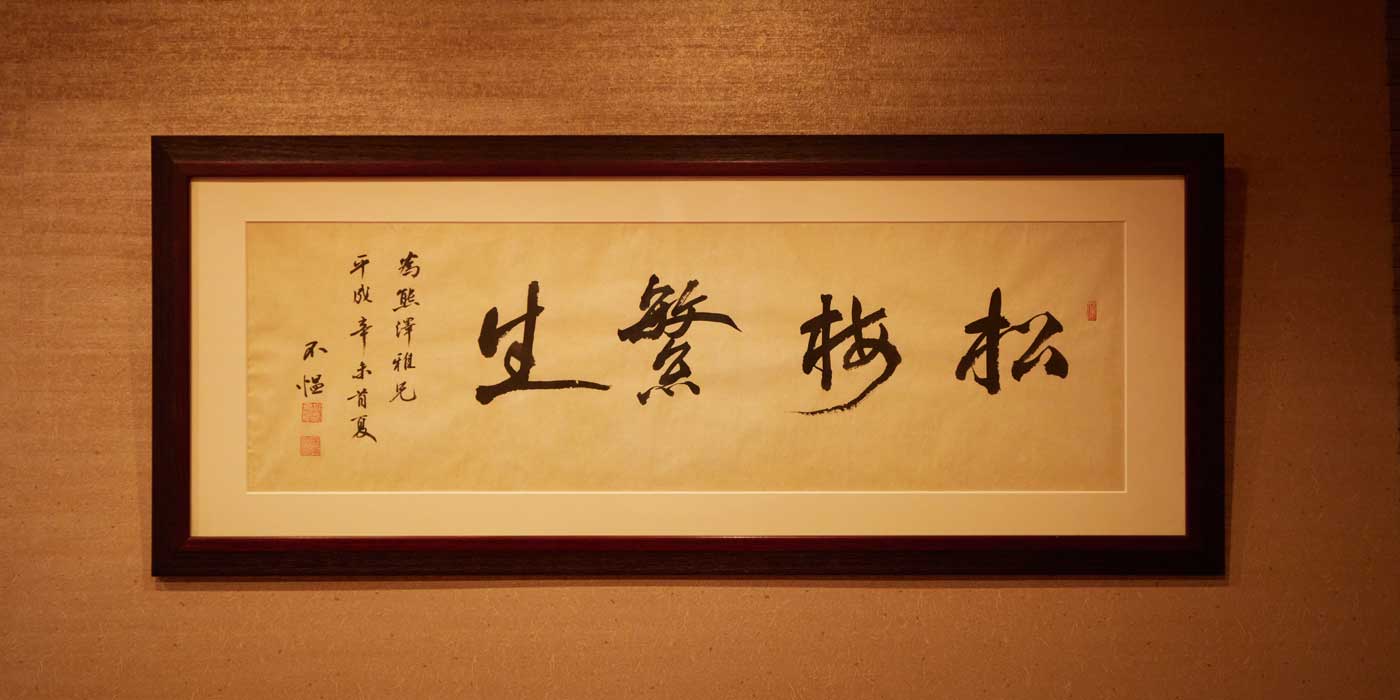 松梅繁生
為熊澤雅兄
平成辛未首夏
不愠